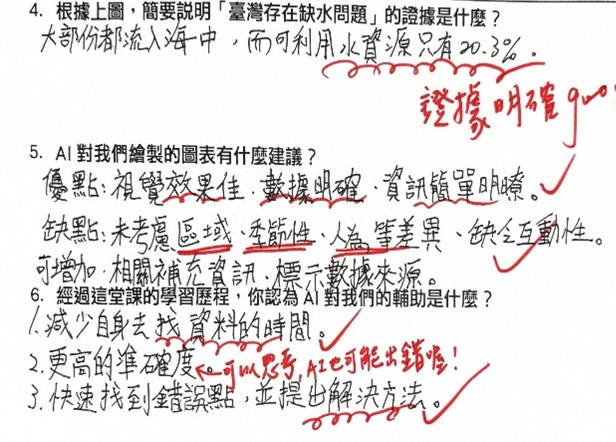 4. 根據上圖，簡要說明「臺灣存在缺水問題」的證據是什麼？
大部份都流入海中，而可利用水資源只有20.3%。
證據明確 good
5. AI 對我們繪製的圖表有什麼建議？
優點：視覺效果佳、數據明確、資訊簡單明瞭。
缺點：未考慮區域、季節性、人為等差異、缺乏互動性。
可增加，相關補充資訊、標示數據來源。
6. 經過這堂課的學習歷程，你認為 AI 對我們的輔助是什麼？
1. 減少自身去找資料的時間。
2. 更高的準確度。←可以思考，AI也可能出錯喔！
3. 快速找到錯誤點，並提出解決方法。